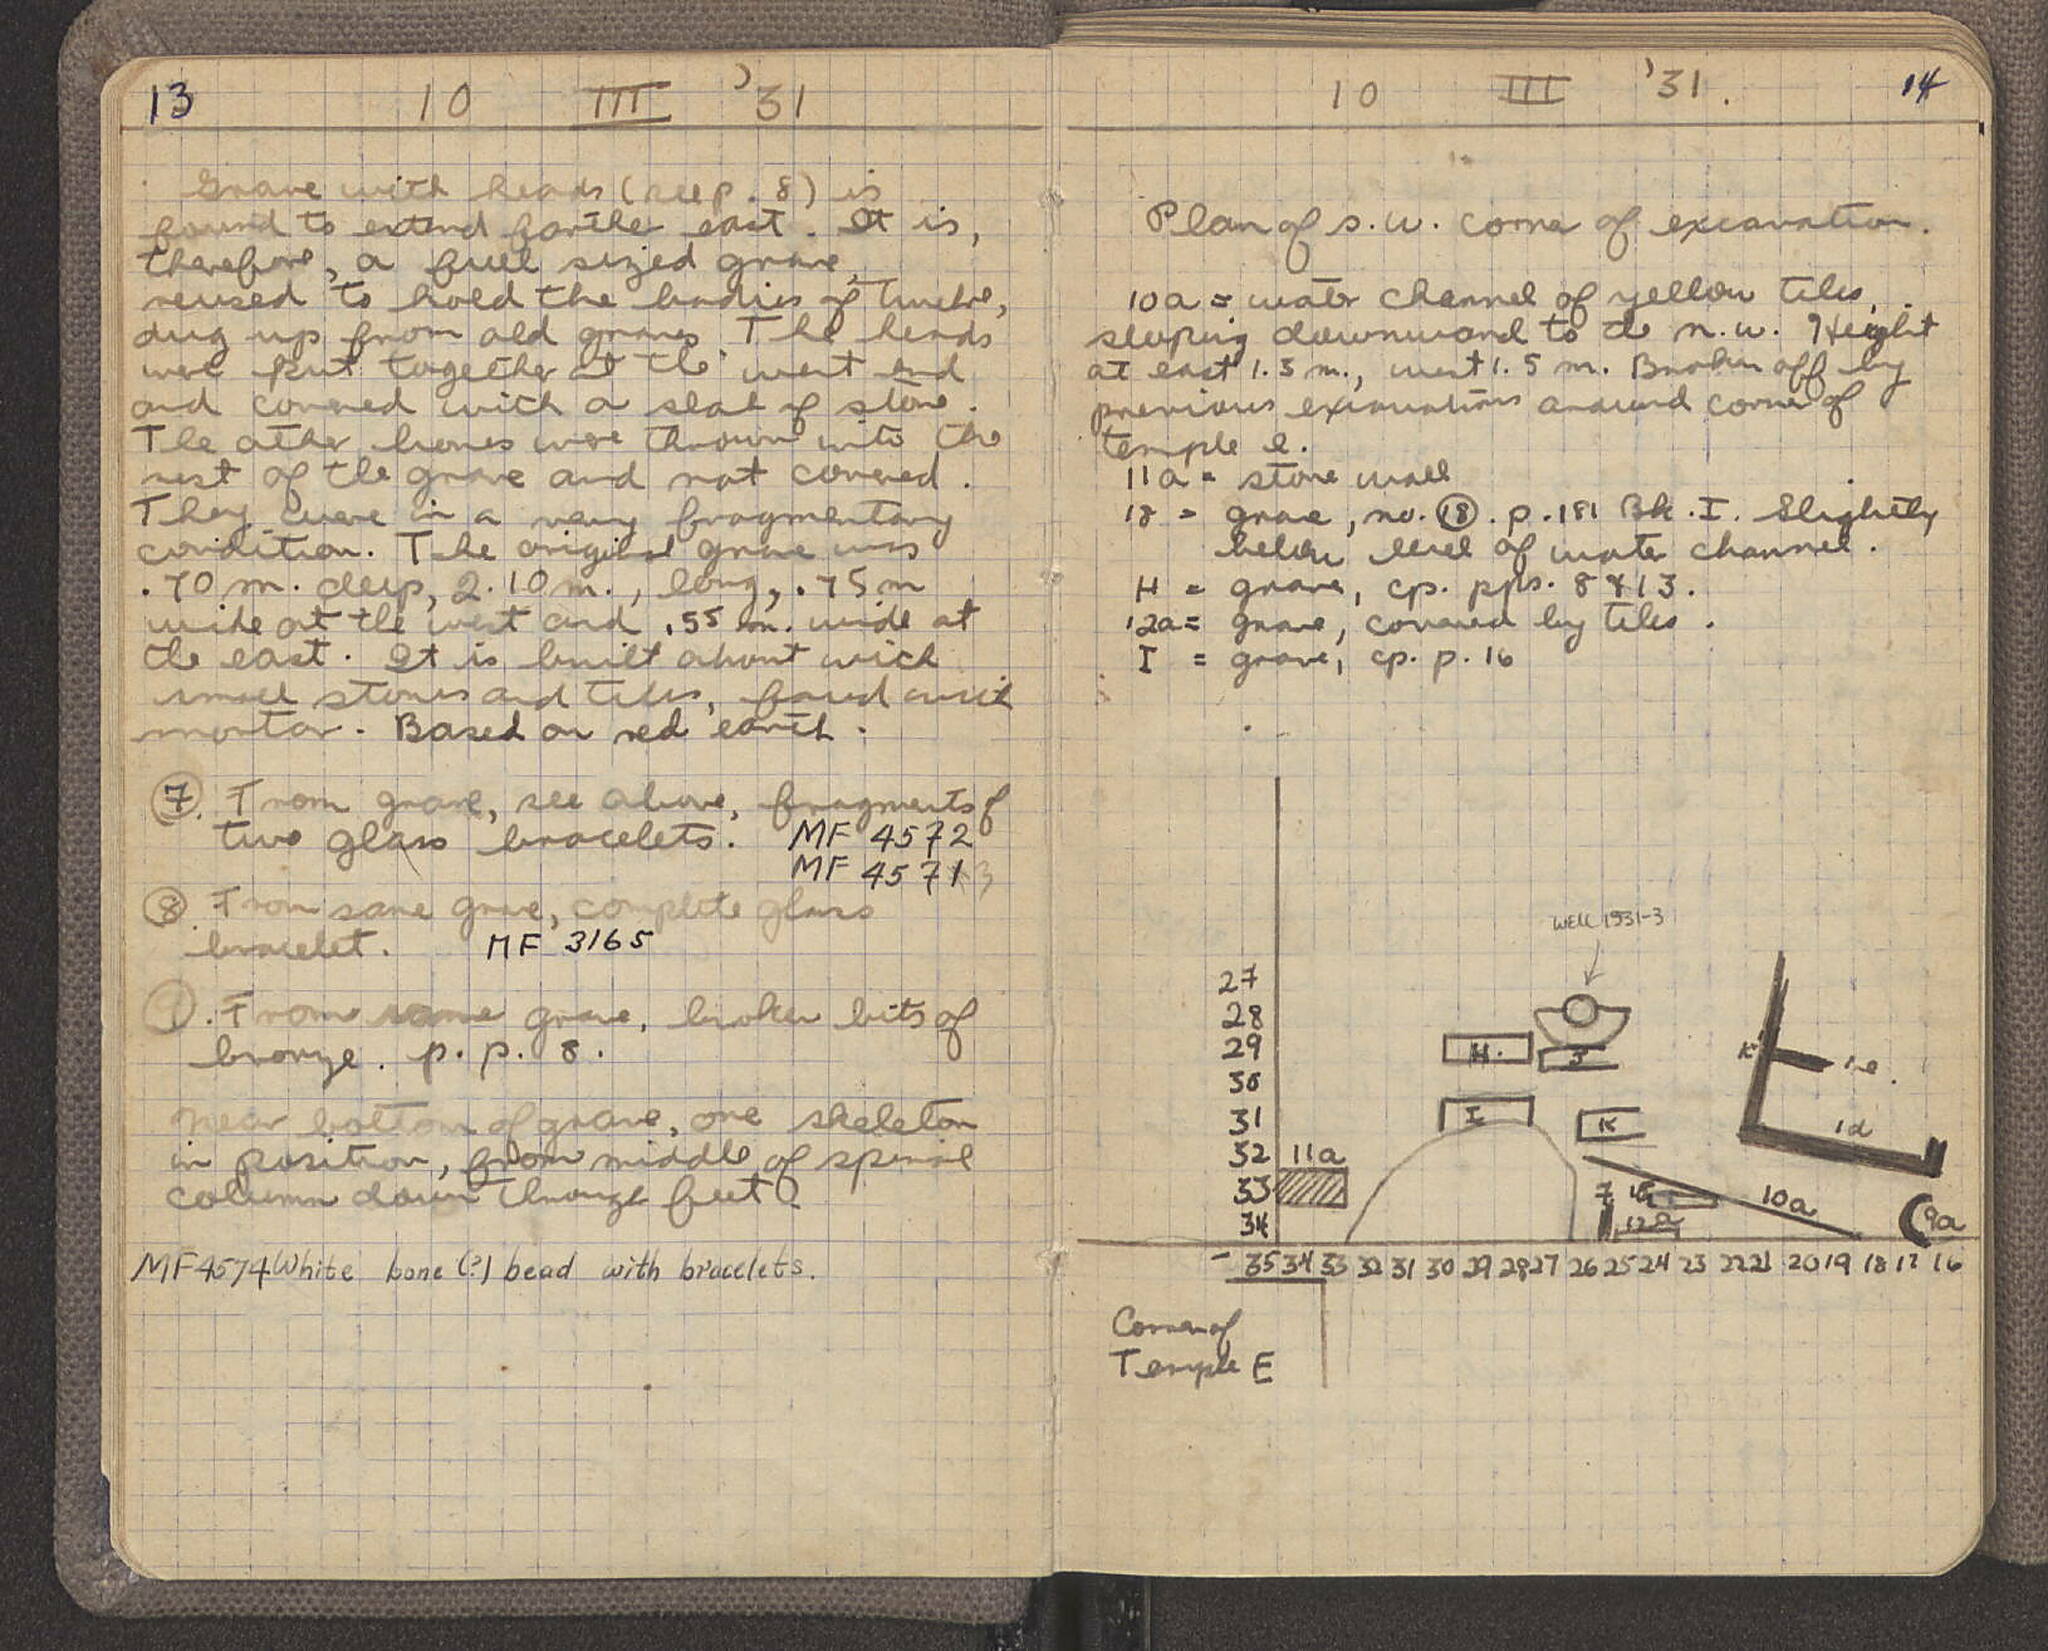 13 10 III '31
Grave with heads (see p. 8) is
found to extend farther east. It is,
therefore, a full sized grave,
reused to hold the bodies of twelve,
dug up from old graves. The heads
were put together at the west end
and covered with a slab of stone.
The other bones were thrown into the
rest of the grave and not covered.
They were in a very fragmentary
condition. The original grave was
.70 m. deep, 2.10 m., long, .75 m
wide at the west and .55 m. wide at
the east. It is built about with
small stones and tiles, faced with
mortar. Based on red earth.
7. From grave, see above, fragments of
two glass bracelets. MF 4572
MF 4571
8 From same grave, complete glass
bracelet. MF 3165
9. From same grave, broken bits of
bronze. p. p. 8.
Near bottom of grave, one skeleton
in position, from middle of spinal
column down through feet.
MF4574 White bone (?) bead with bracelets.
10 III '31. 14
Plan of s.w. corner of excavation.
10a = water channel of yellow tiles,
sloping downward to the n.w. Height
at east 1.3 m., west 1.5 m. Broken off by
previous excavations around corner of
temple e.
11a = stone wall
18 = grave, no. 18. p. 181 Bk. I. Slightly
below level of water channel.
H = grave, cp. pps. 8 & 13.
12a = grave, covered by tiles.
I = grave, cp. p. 16
WELL 1931-3
27
28
29 H. J K 1e.
30
31 I K 1d
32 11a
33 7 18 10a
34 12a 9a
- 35 34 33 32 31 30 29 28 27 26 25 24 23 22 21 20 19 18 17 16
Corner of
Temple E